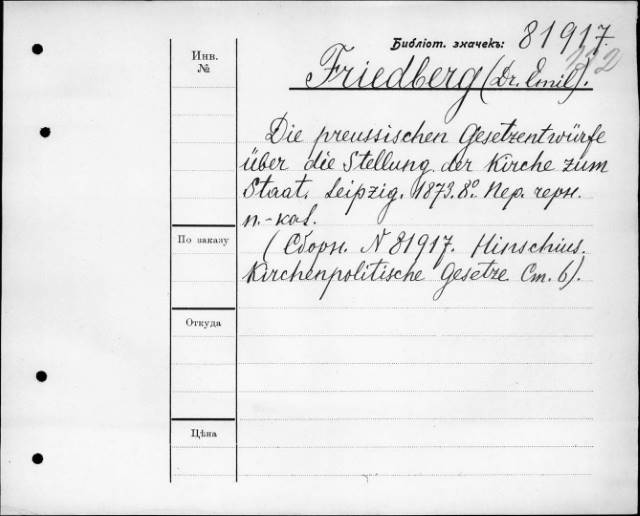 Библіот. значекъ: 81917.
Инв.
№
Friedberg (Dr. Emil).
Die preussischen Gesetzentwürfe
über die Stellung der Kirche zum
Staat. Leipzig. 1873. 8º. Пер. черн.
п.-кол.
По заказу
(Сборн. N 81917. Hinschius,
Kirchenpolitische Gesetze Ст. 6).
Откуда
Цѣна